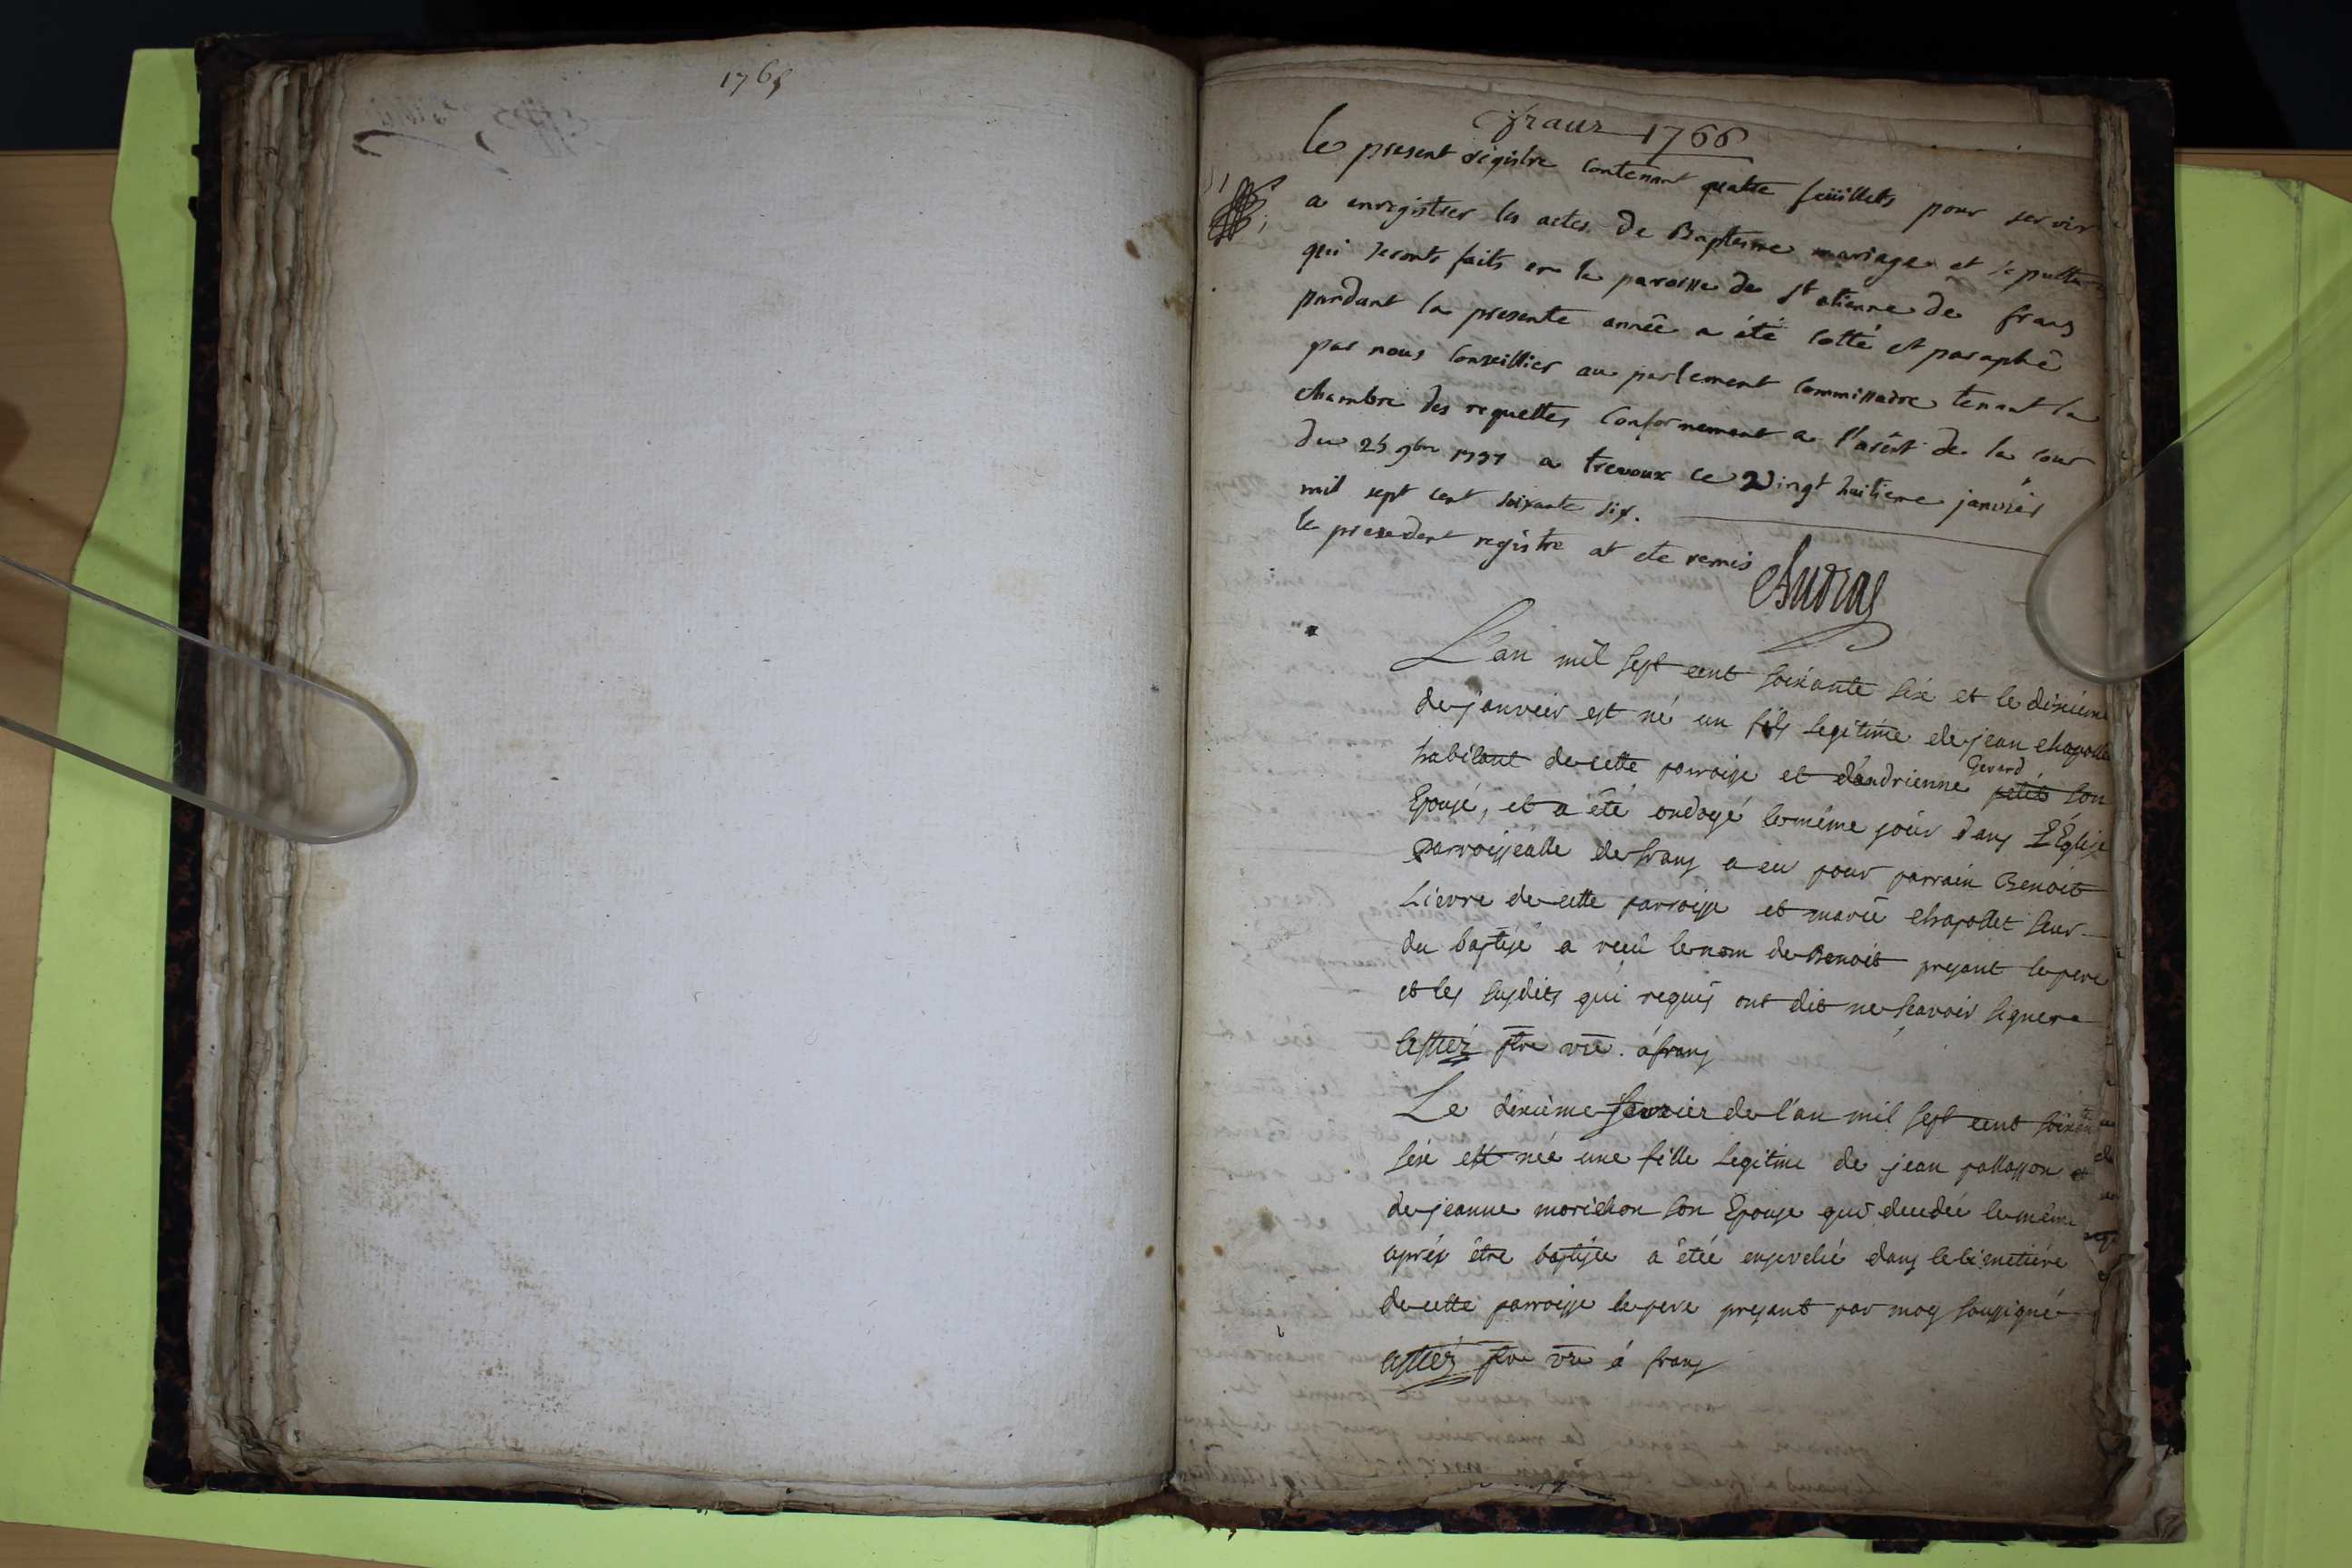 1765
frans 1766
le present registre contenant quatre feüillets pour servir
a enregistrer les actes de Baptesme mariage et sepultu
qui seronts faits en la paroisse de st etienne de frans
pendant la presente année a été cotté et paraphé
par nous Conseillier au parlement Commissaire tenant la
chambre des requettes Conformement a l'arèst de la cour
du 25 9bre a trevoux ce Vingt huitieme janvier
mil sept cent soixante six.
le presedent registre at ete remis
Audras
L'an mil sept cent soixante six et le dixiéme
de janvier est né un fils legitime de jean chapollet
habitant de cette parroisse et d'andrienne petit Gerard son
Epouse, et a été ondoyé le même joùr dans L'Eglise
parroissealle de frans a eu pour parrain Benoit
Lievre de cette parroisse et marie chapollet seur
du baptisé a recû le nom de Benoit presant le pere
et les susdits qui requis ont dit ne sçavoir signer
astier ptre vre. à frans
Le dixiéme fevrier de l'an mil sept cent soixan
six est née une fille legitime de jean pallasson et
de jeanne morichon son Epouse qui decedée le même
aprés être baptisée a étée ensevelié dans le cimetiére
de cette parroisse le pere presant par moy soussigné
astier ptre vre à frans